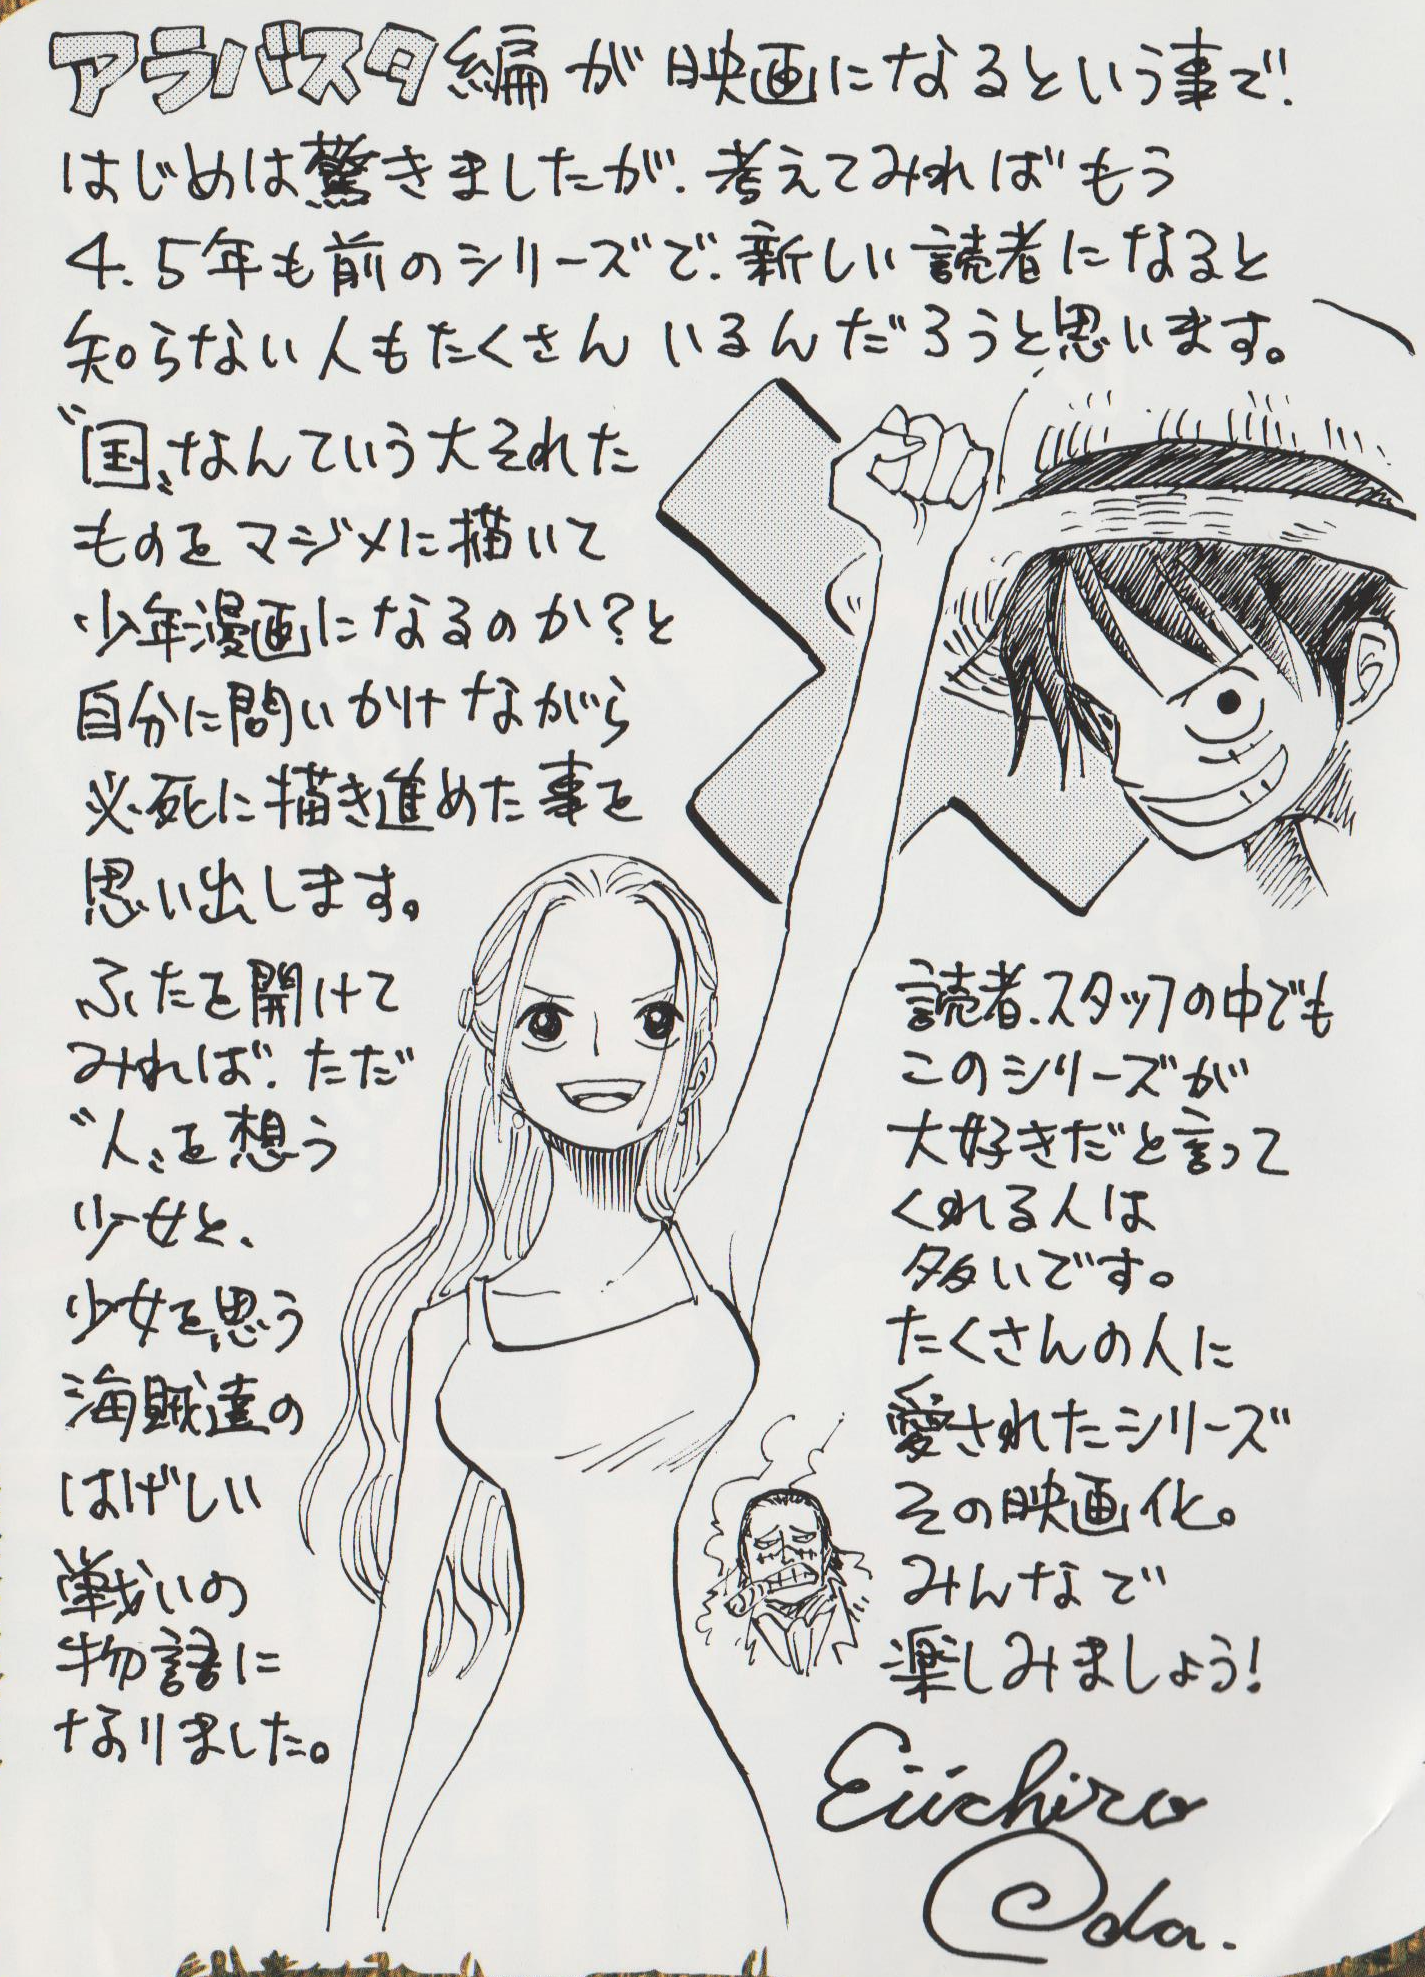 アラバスタ編が映画になるという事で.
はじめは驚きましたが.考えてみればもう
4.5年も前のシリーズで.新しい読者になると
知らない人もたくさんいるんだろうと思います。
〝国〟なんていう大それた
ものをマジメに描いて
少年漫画になるのか?と
自分に問いかけながら
必死に描き進めた事を
思い出します。
ふたを開けて
みれば.ただ
〝人〟を想う
少女と、
少女を思う
海賊達の
はげしい
戦いの
物語に
なりました。
読者.スタッフの中でも
このシリーズが
大好きだと言って
くれる人は
多いです。
たくさんの人に
愛されたシリーズ
その映画化。
みんなで
楽しみましょう!
Eiichiro
Oda.